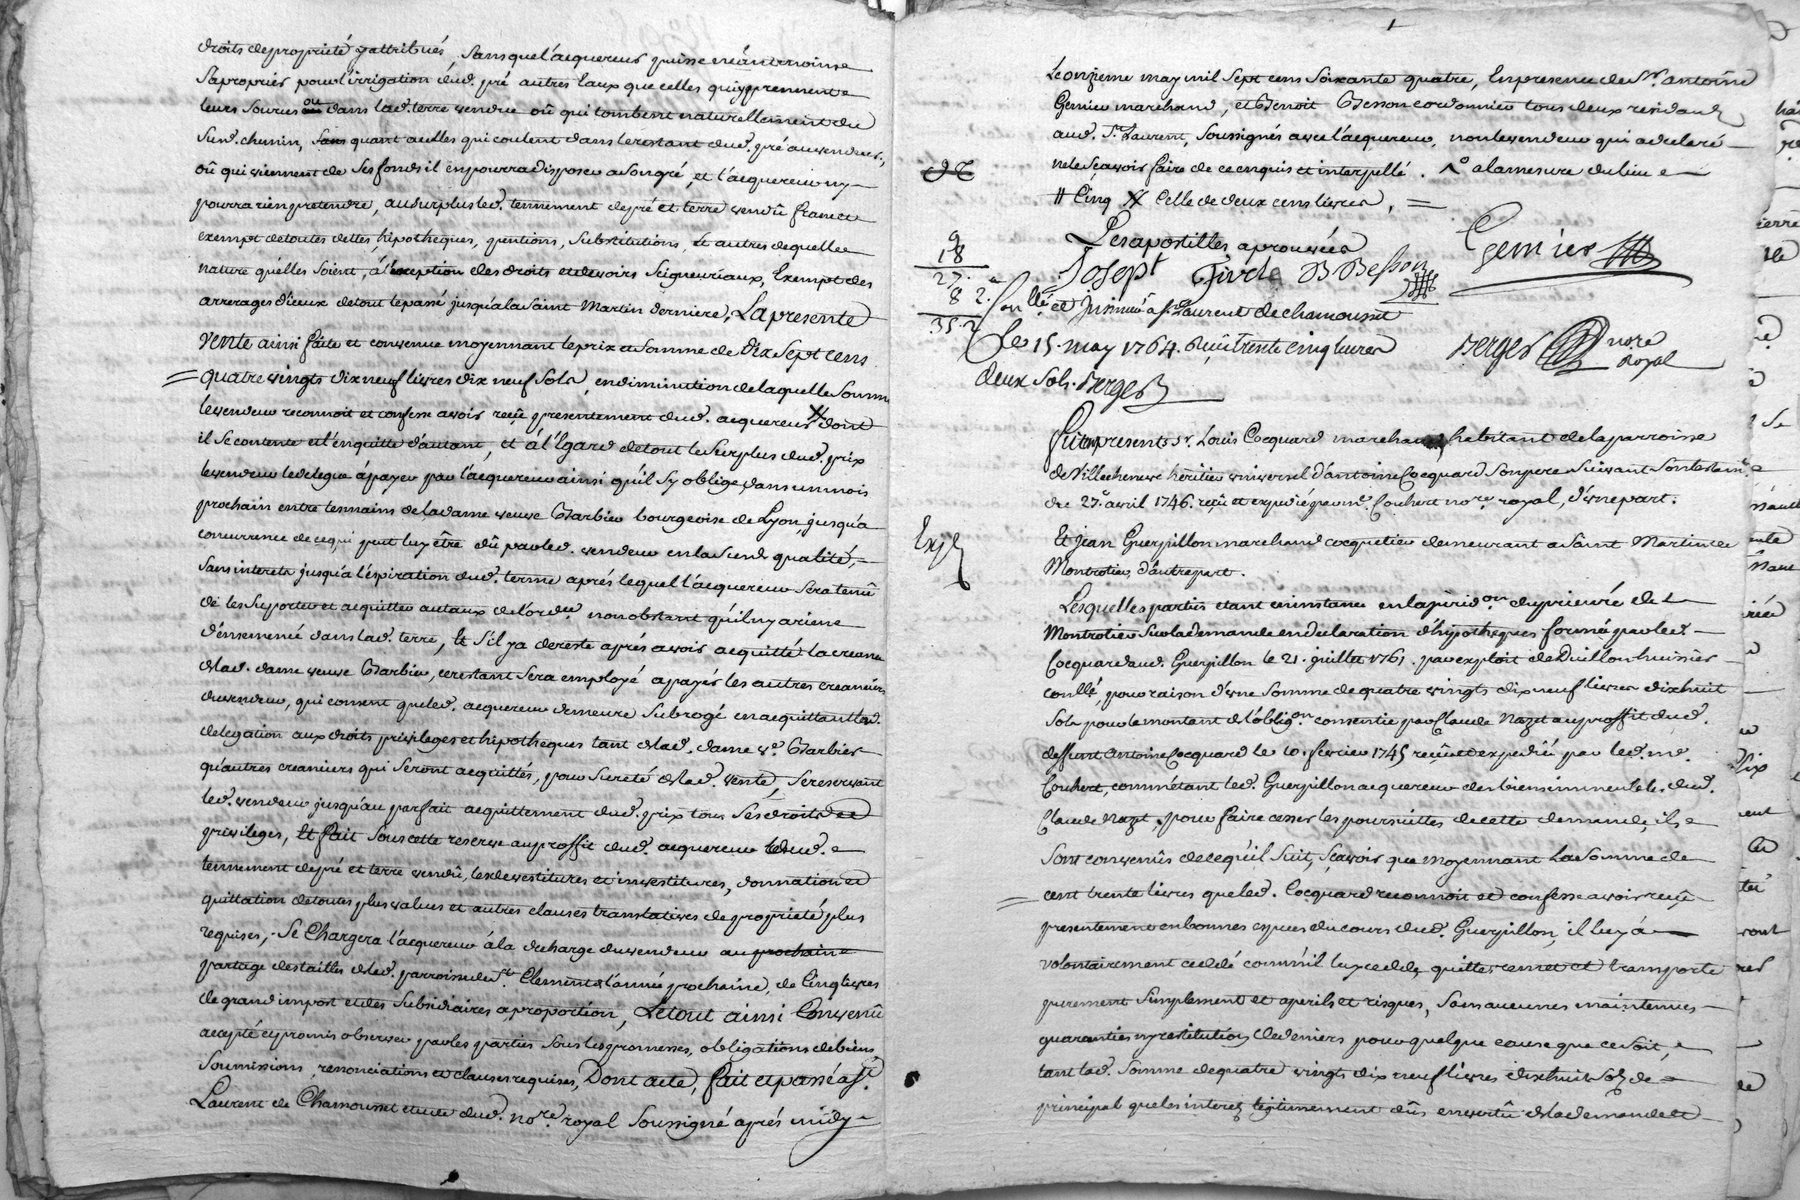 droits de proprieté y attribués, sans que l'acquereur puisse néantmoins
s'aproprier pour l'irrigation dud. pré autres eaux que celles qui y prennent
leurs sources ou dans lad. terre vendue où qui tombent naturellement du
susd. chemin, quant a celles qui coulent dans le restant dud. pré au vendeur,
où qui viennent de ses fonds il en pourra disposer a son gré, et l'acquereur n'y
pourra rien pretendre, au surplus led. tennement de pré et terre vendû franc et
exempt de toutes dettes, hipotheques, pentions, substitutions, et autres de quelle
nature qu'elles soient, à l'exeption des droits et devoirs seigneuriaux, exempt des
arrerages d'iceux de tout le passé jusqu'a la saint Martin derniere, La presente
vente ainsi faite et convenue moyennant le prix et somme de dix sept cens
quatre vingts dix neuf livres dix neuf sols, en diminution de laquelle somme
le vendeur reconnoit et confesse avoir reçû presentement dud. acquereur X dont
il se contente et l'en quitte d'autant, et à l'égard de tout le surplus dud. prix
le vendeur le delegue à payer par l'acquereur ainsi qu'il s'y oblige, dans un mois
prochain entre les mains de la dame veuve Barbier bourgeoise de Lyon, jusqu'a
concurrence de ce qui peut luy être dû par led. vendeur en lad. qualité,
sans interets jusqu'a l'expiration dud. terme aprés lequel l'acquereur sera tenû
de les suporter et acquitter au taux de l'ord.ce nonobstant qu'il n'y a rien
d'ensemencé dans lad. terre, et s'il y a de reste aprés avoir acquitté la creance
de lad. dame veuve Barbier, ce restant sera employé a payer les autres creanciers
du vendeur, qui consent que led. acquereur demeure subrogé en acquittant lad.
delegation aux droits privileges et hipotheques tant de lad. dame v.e Barbier
qu'autres creanciers qui seront acquittés, pour sureté de lad. vente, se reservant
led. vendeur jusqu'au parfait acquittement dud. prix tous ses droits et
privileges, et fait sous cette reserve au proffit dud. acquereur dud.
tennement de pré et terre vendû, les devestitures et investitures, donnation et
quittation de toutes plus values et autres clauses translatives de proprieté plus
requises, se chargera l'acquereur à la decharge du vendeur au prochain
partage des tailles de lad. parroisse de S.t Clement de l'année prochaine, de cinq livres
de grand impost et des subsidiaires a proportion, Le tout ainsi convenû
accepté et promis observer par les parties sous les promesses, obligations de biens,
soumissions, renonciations et clauses requises, Dont acte, fait et passé a S.t
Laurent de Chamousset etude dud. no.re royal soussigné aprés midy
Le onzieme may mil sept cens soixante quatre, en presence de S.r antoine
Gemier marchand, et Benoit Besson cordonnier tous deux residants
aud. S.t Laurent, soussignés avec l'acquereur, non le vendeur qui a declaré
ne le sçavoir faire de ce enquis et interpellé. a la mesure du lieu
// Cinq X Celle de deux cens livres,
Les apostilles aprouvées
Gemier
Josept B Besson
9
18
27.
8 2.
35.2
Con.llé et insinué à S.t Laurent de chamousset
Le 15. may 1764. Reçu trente cinq livres
deux sols. Berger
Berger no.re
Royal
Fut present S.r Louis Cocquard marchand habitant de la parroisse
de Villecheneve heritier universel d'antoine Cocquard son pere suivant son testam.t
du 27.e avril 1746. reçû et expedié par m.e Couhert no.re royal, d'une part.
Exp.é
Et jean Guerpillon marchand cocquetier demeurant a Saint Martin de
Montrotier, d'autre part.
Lesquelles parties etant en instance en la jurid.on du prieuré de
Montrotier sur la demande en declaration d'hipotheques formée par led.
Cocquard aud. Guerpillon le 21. juillet 1761. par exploit de Duillon huissier
con.llé, pour raison d'une somme de quatre vingts dix neuf livres dix huit
sols pour le montant de l'oblig.on consentie par Claude Nazet au proffit dud.
deffunt Antoine Cocquard le 10. fevrier 1745 reçû et expedié par led. m.e
Couhert, comme étant led. Guerpillon acquereur des biens immeubles dud.
Claude Nazet, pour faire cesser les poursuittes de cette demande, ils
sont convenûs de ce qu'il suit, sçavoir que moyennant la somme de
cent trente livres que led. Cocquard reconnoit et confesse avoir reçû
presentement en bonnes especes du cours dud. Guerpillon, il luy a
volontairement cedé comm'il luy cede, quitte, remet et transporte
purement simplement et a perils et risques, sans aucunes maintenues
guaranties ny restitution de deniers pour quelque cause que ce soit,
tant lad. somme de quatre vingts dix neuf livres dix huit sols de
principal que les interets legitimement dûs en vertû de la demande et